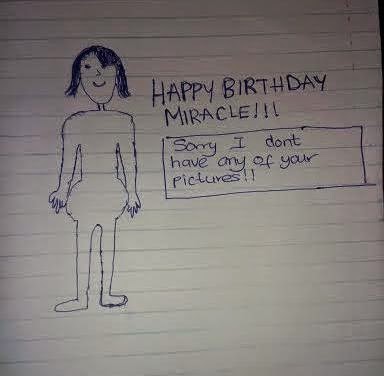 HAPPY BIRTHDAY
MIRACLE!!!
Sorry I dont
have any of your
pictures!!